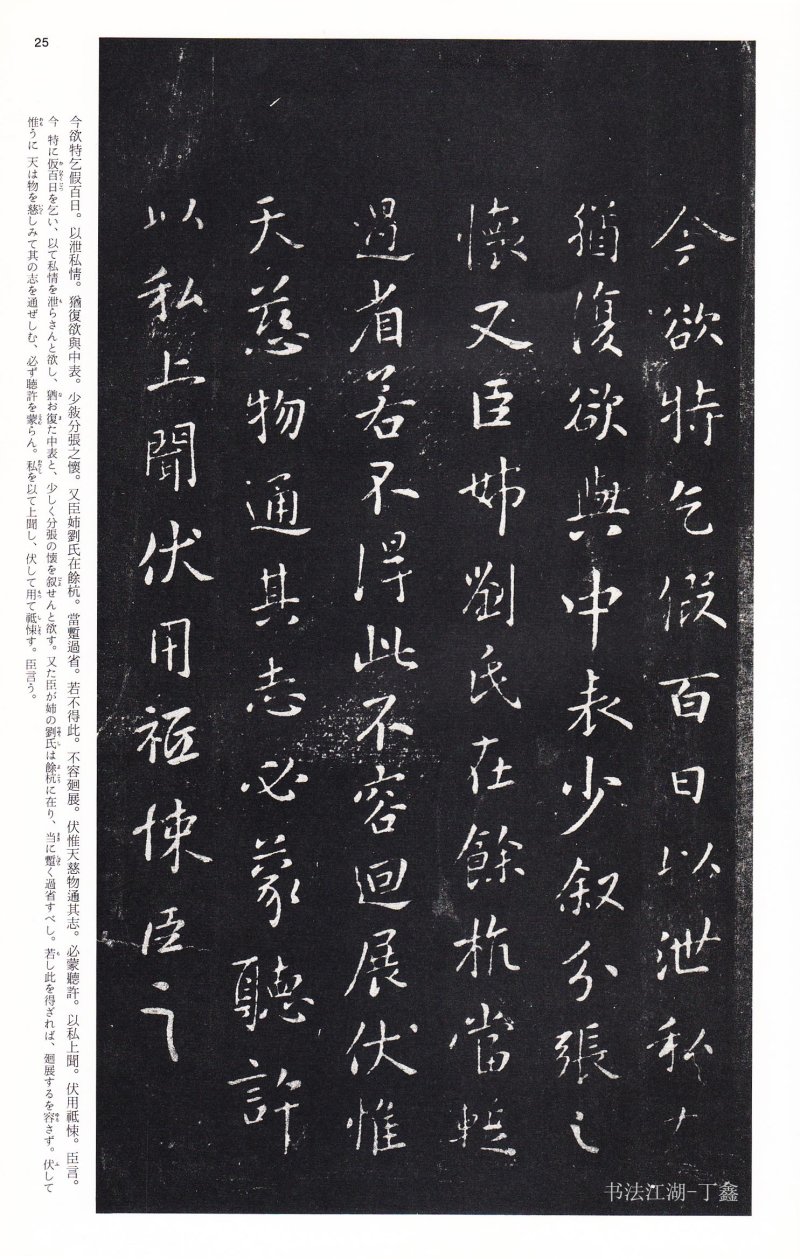 25
今欲特乞假百日以泄私
猶復欲與中表少叙分張之
懐又臣姊劉氏在餘杭當蹔
過省若不得此不容迴展伏惟
天慈物通其志必蒙聽許
以私上聞伏用祗悚臣言
今欲特乞假百日。以泄私情。猶復欲與中表。少敍分張之懷。又臣姉劉氏在餘杭。當蹔過省。若不得此。不容廻展。伏惟天慈物通其志。必蒙聽許。以私上聞。伏用祗悚。臣言。
今 特に仮百日を乞い、以て私情を泄らさんと欲し、猶お復た中表と、少しく分張の懐を叙せんと欲す。又た臣が姉の劉氏は餘杭に在り、当に蹔く過省すべし。若し此を得ざれば、廻展するを容さず。伏して
惟うに 天は物を慈しみて其の志を通ぜしむ、必ず聴許を蒙らん。私を以て上聞し、伏して用て祗悚す。臣言う。
书法江湖-丁鑫